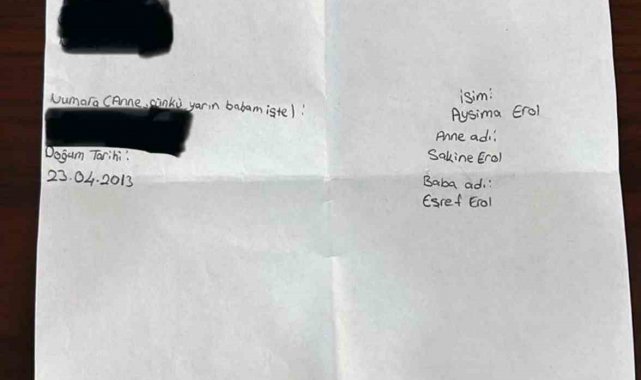 Numara (Anne, çünkü yarın babam işte):
Doğum Tarihi:
23.04.2013
isim:
Aysima Erol
Anne adı:
Sakine Erol
Baba adı:
Eşref Erol